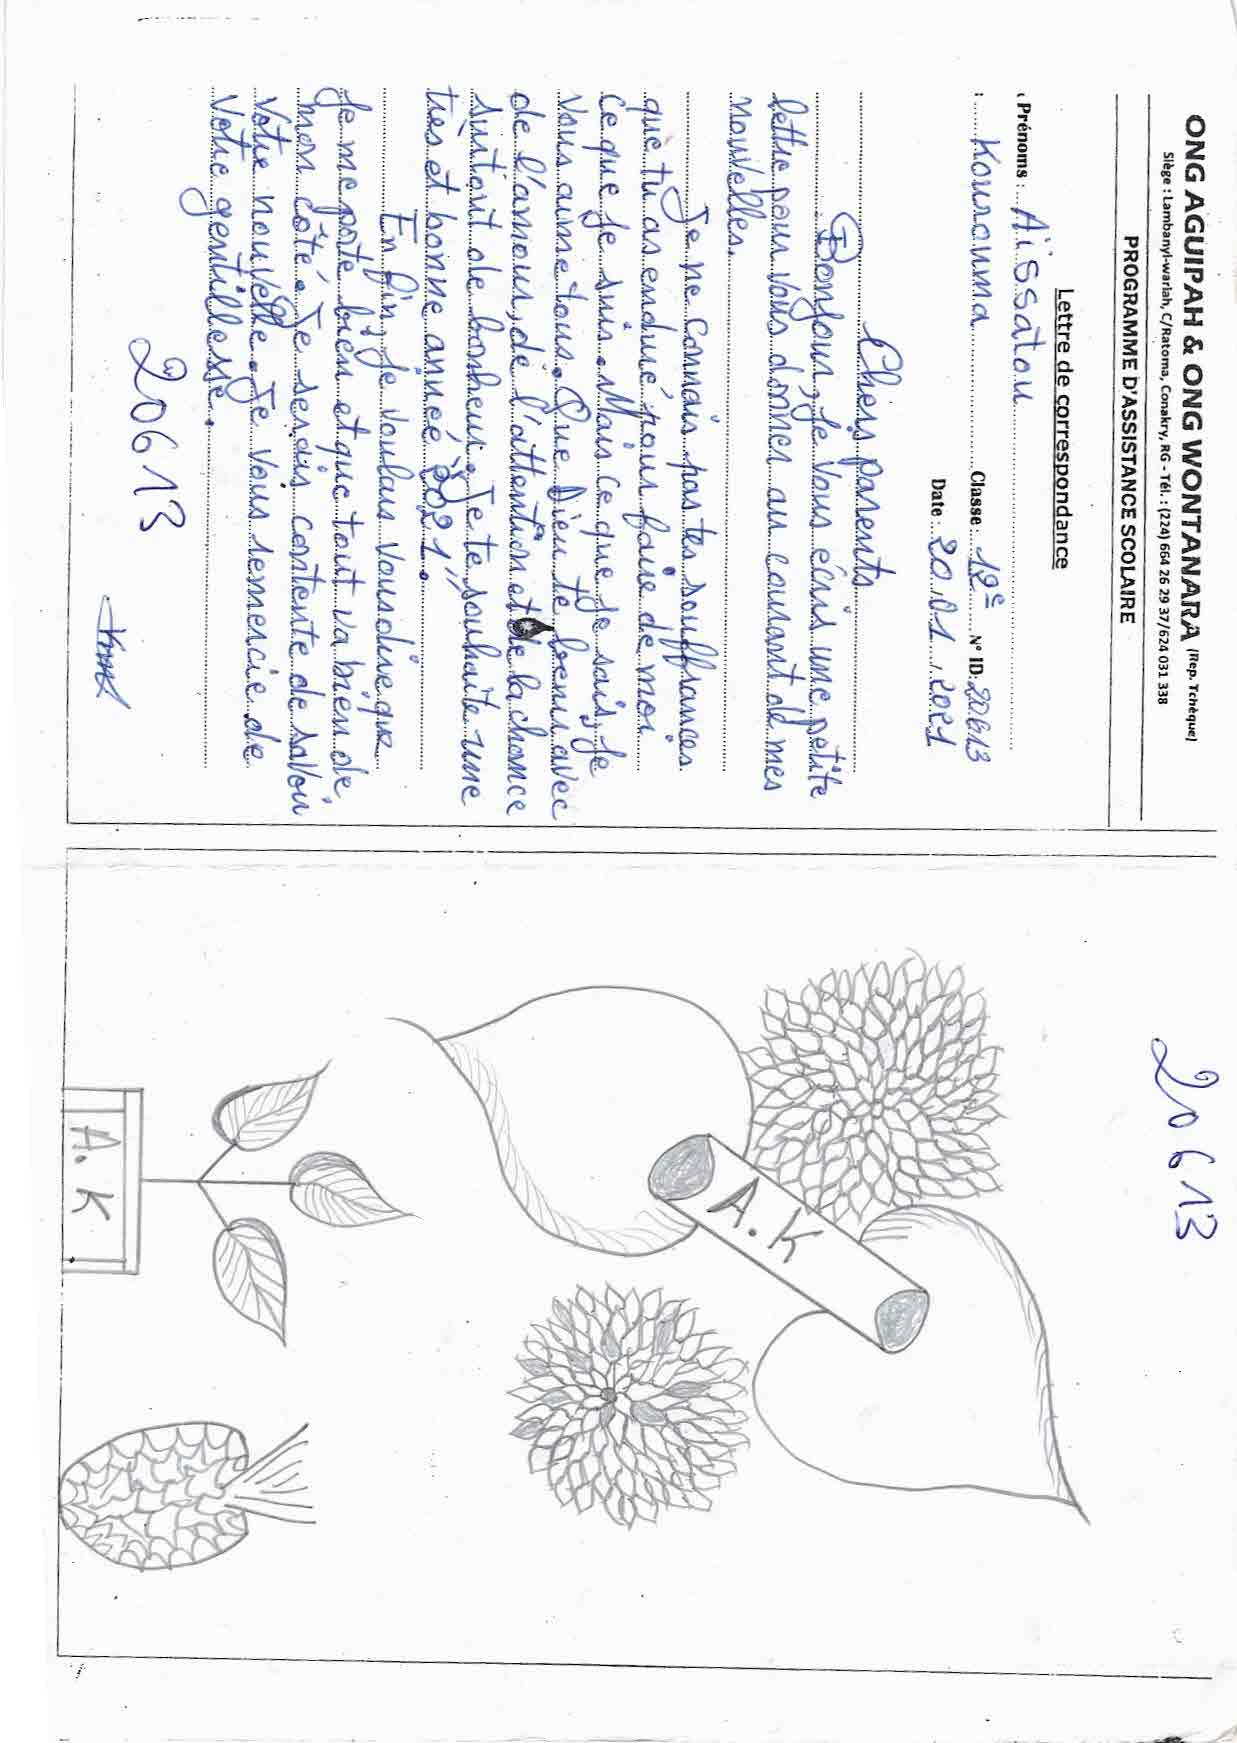 ONG AGUIPAH & ONG WONTANARA (Rep. Tchèque)
Siège : Lambanyl-wariah, C/Ratoma, Conakry, RG - Tél. : (224) 664 26 29 37/624 031 338
PROGRAMME D'ASSISTANCE SCOLAIRE
Lettre de correspondance
Prénoms : Aissatou
: Kourouma Classe : 12e N° ID: 20613
Date : 20.01.2021
Chers parents
Bonjour, Je vous écris une petite
lettre pour vous donner au courant de mes
nouvelles.
Je ne connais pas tes souffrances
que tu as enduré pour faire de moi
ce que je suis. Mais ce que je sais, je
vous aime tous. Que Dieu te benis avec
de l'amour, de l'attention et de la chance
surtout de bonheur. Je te souhaite une
très et bonne année "2021".
En fin, Je voulais vous dire que
Je me porte bien et que tout va bien de
mon côté. Je serais contente de savoir
votre nouvelle. Je vous remercie de
votre gentillesse.
20613
20613
A.K
A.K